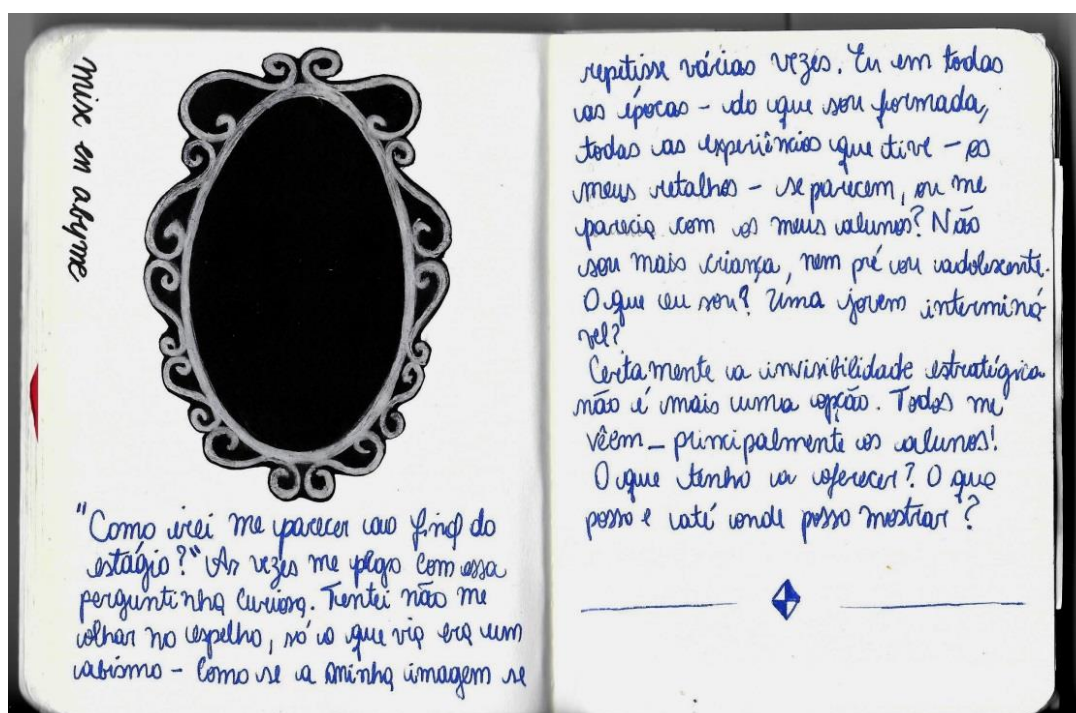 mise en abyme
"Como irei me parecer ao final do
estágio?" As vezes me pego com essa
perguntinha curiosa. Tentei não me
olhar no espelho, só o que via era um
abismo - como se a minha imagem se
repetisse várias vezes. Eu em todas
as épocas - do que sou formada,
todas as experiências que tive - os
meus retalhos - se parecem, ou me
pareciam com os meus alunos? Não
sou mais criança, nem pré ou adolescente.
O que eu sou? Uma jovem interminá-
vel?
Certamente a invisibilidade estratégica
não é mais uma opção. Todos me
vêem - principalmente os alunos!
O que tenho a oferecer? O que
posso e até onde posso mostrar?